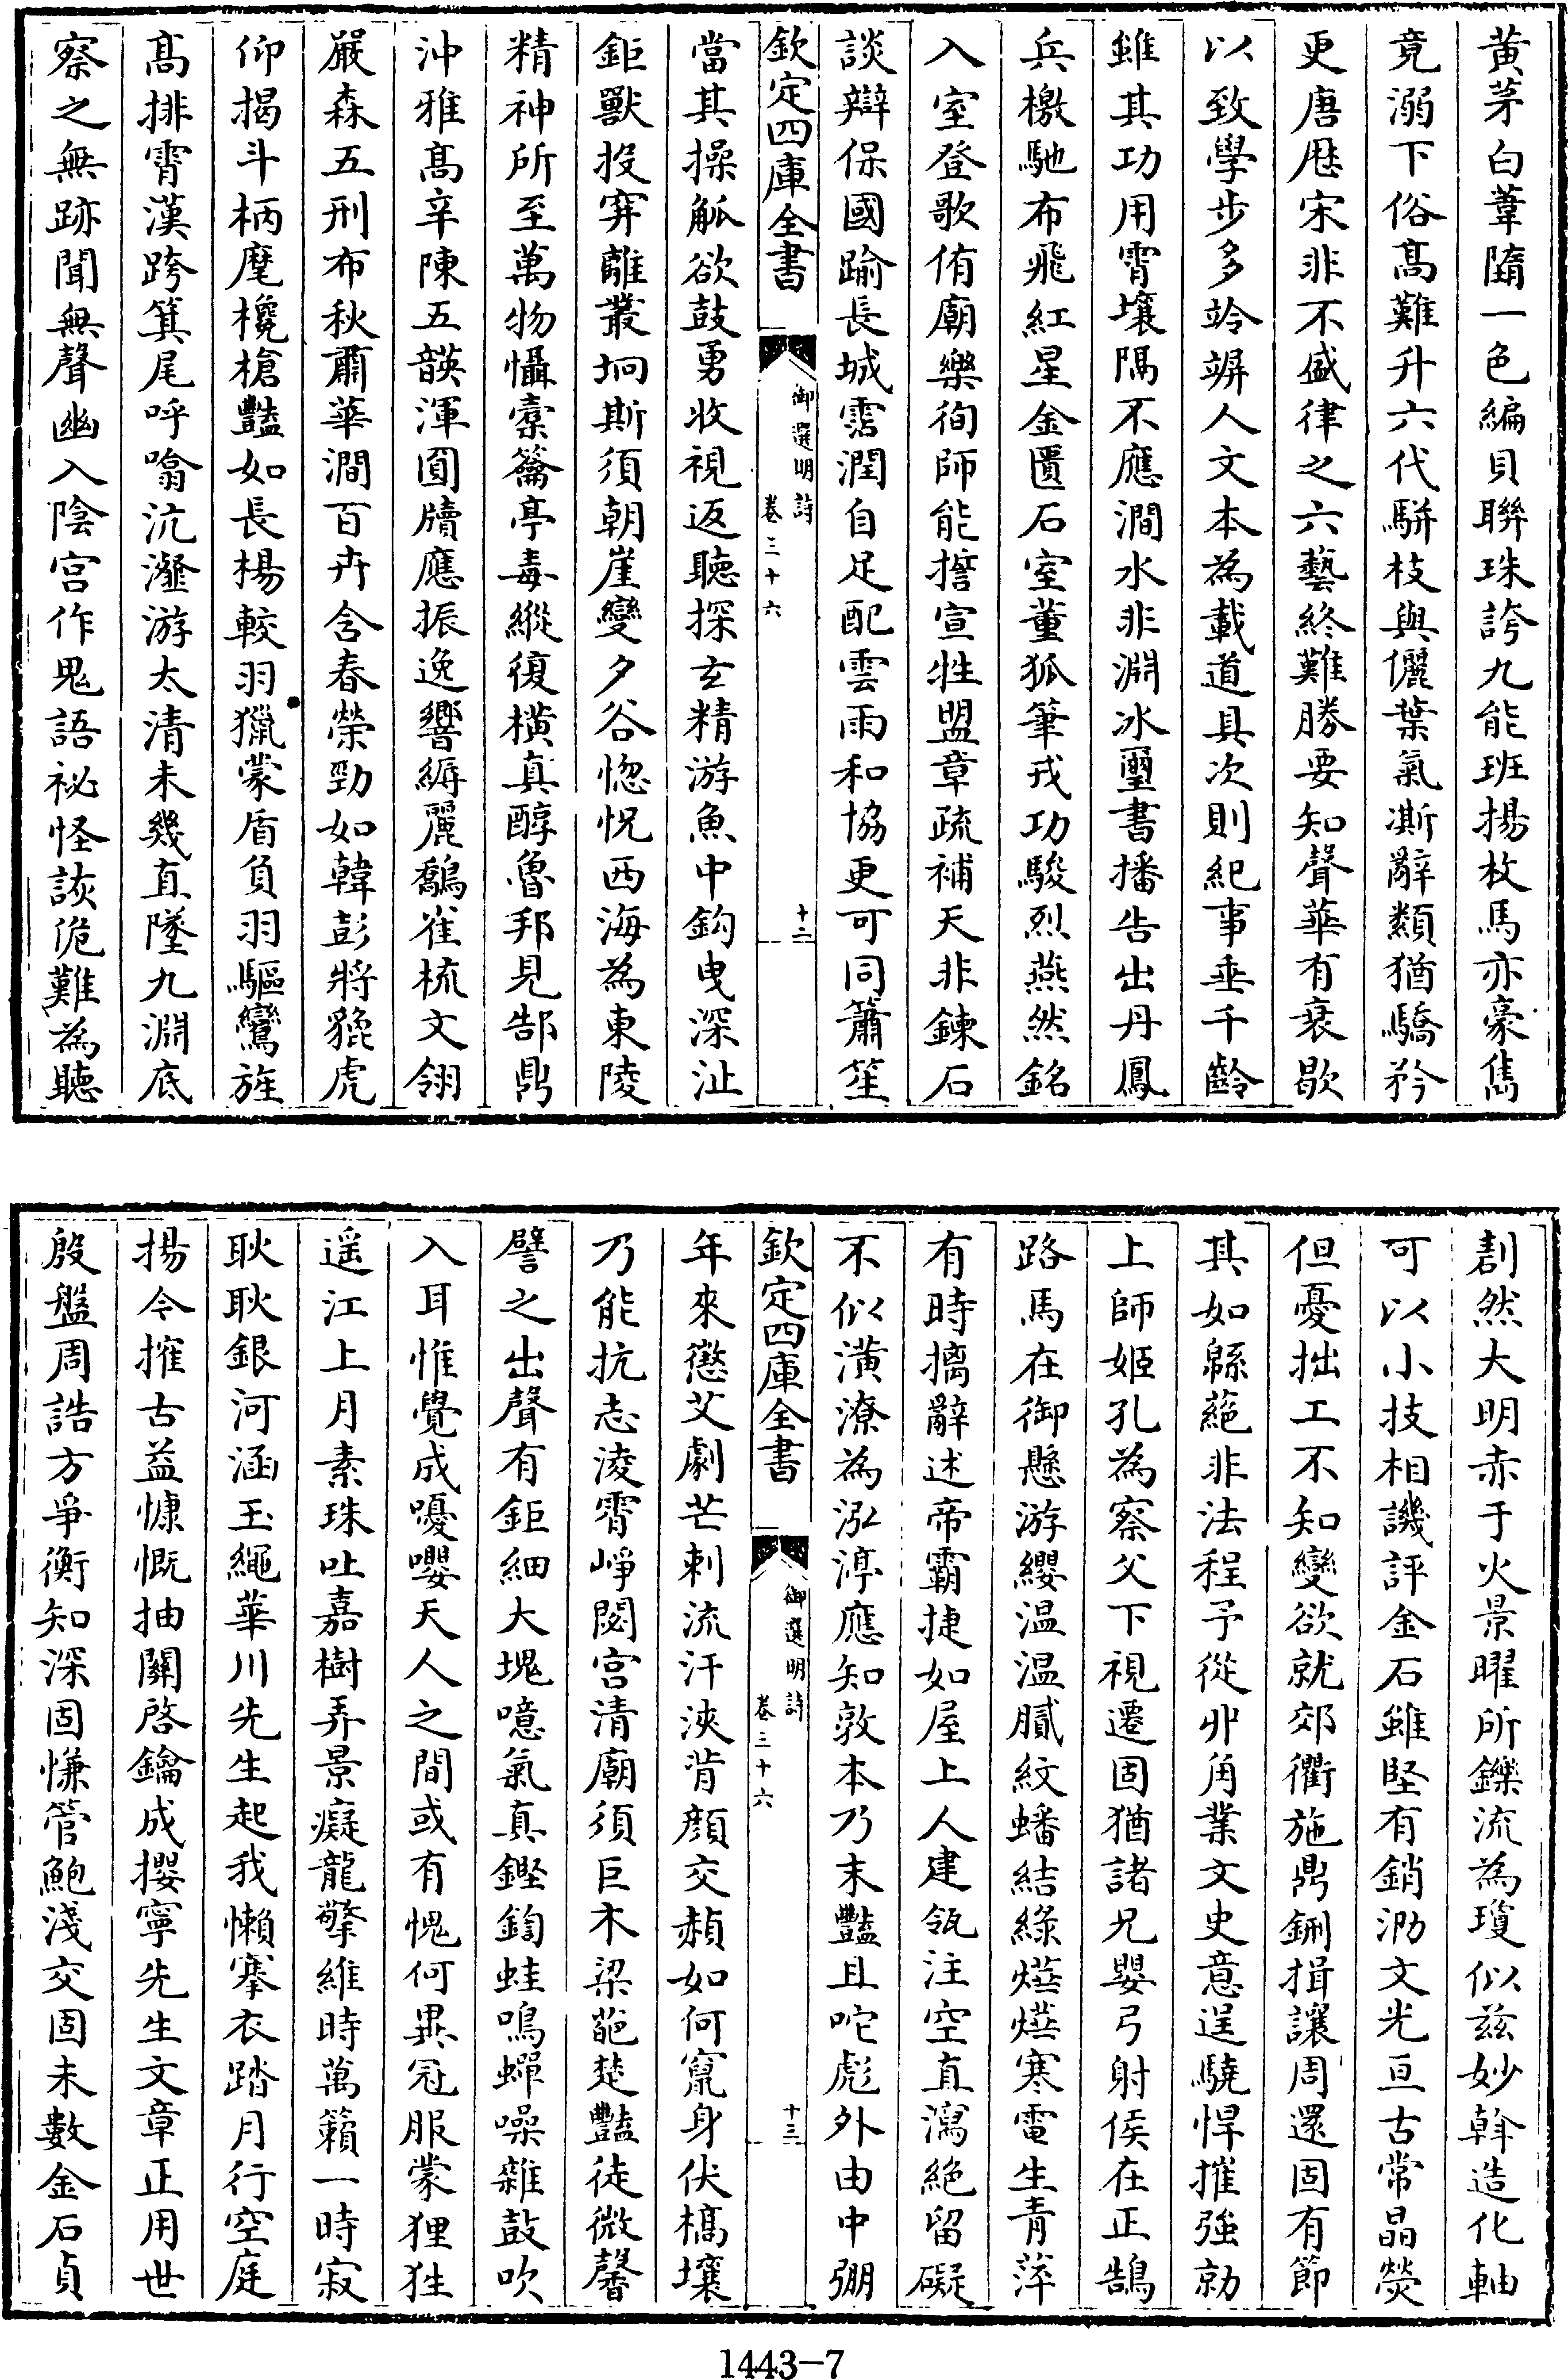 黃茅白葦隨一色編貝聯珠誇九能班揚枚馬亦豪雋
竟溺下俗髙難升六代駢枝與儷葉氣澌辭纇猶驕矜
更唐歴宋非不盛律之六藝終難勝要知聲華有衰歇
以致學步多竛竮人文本為載道具次則紀事垂千齡
雖其功用霄壤隔不應澗水非淵冰璽書播告出丹鳳
兵檄馳布飛紅星金匱石室董狐筆戎功駿烈燕然銘
入室登歌侑廟樂徇師能擔宣牲盟章疏補天非鍊石
談辯保國踰長城霑潤自足配雲雨和協更可同簫笙
欽定四庫全書
御選明詩
卷三十六
十二
當其操觚欲鼓勇收視返聽探𤣥精游魚中鈎曳深沚
鉅獸投穽離叢坰斯須朝崖變夕谷惚怳西海為東陵
精神所至萬物懾橐籥亭毒縱復橫真醇魯邦見郜鼎
沖雅髙辛陳五韺渾圓牘應振逸響縟麗鷸雀梳文翎
嚴森五刑布秋肅華澗百卉含春榮勁如韓彭將貔虎
仰揭斗柄麾欃槍豔如長楊較羽獵蒙盾負羽驅鸞旌
髙排霄漢跨箕尾呼噏沆瀣游太清未幾直墜九淵底
察之無跡聞無聲幽入陰宮作鬼語祕怪詼佹難為聽
劃然大明赤于火景曜所鑠流為瓊似兹妙斡造化軸
可以小技相譏評金石雖堅有銷泐文光亘古常晶熒
但憂拙工不知變欲就郊衢施鼎鉶揖讓周還固有節
其如緜蕝非法程予從丱角業文史意逞驍悍摧強勍
上師姬孔為察父下視遷固猶諸兄嬰弓射侯在正鵠
路馬在御懸游纓温温膩紋蟠結綠𤑔𤑔寒電生青萍
有時摛辭述帝霸捷如屋上人建瓴注空直瀉絕留礙
不似潢潦為泓渟應知敦本乃末豔且咤彪外由中弸
欽定四庫全書
御選明詩
卷三十六
十三
年來懲艾劇芒刺流汗浹背顏交赬如何竄身伏槁壤
乃能抗志淩霄崢閟宮清廟須巨木梁葩楚豔徒微馨
譬之出聲有鉅細大塊噫氣真鏗鍧蛙鳴蟬噪雜鼓吹
入耳惟覺成嚘嚶天人之間或有愧何異冠服蒙狸狌
遥江上月素珠吐嘉樹弄景癡龍擎維時萬籟一時寂
耿耿銀河涵玉繩華川先生起我懶搴衣踏月行空庭
揚今搉古益慷慨抽關啓鑰成攖寧先生文章正用世
殷盤周誥方爭衡知深固慊管鮑淺交固未數金石貞
1443-7